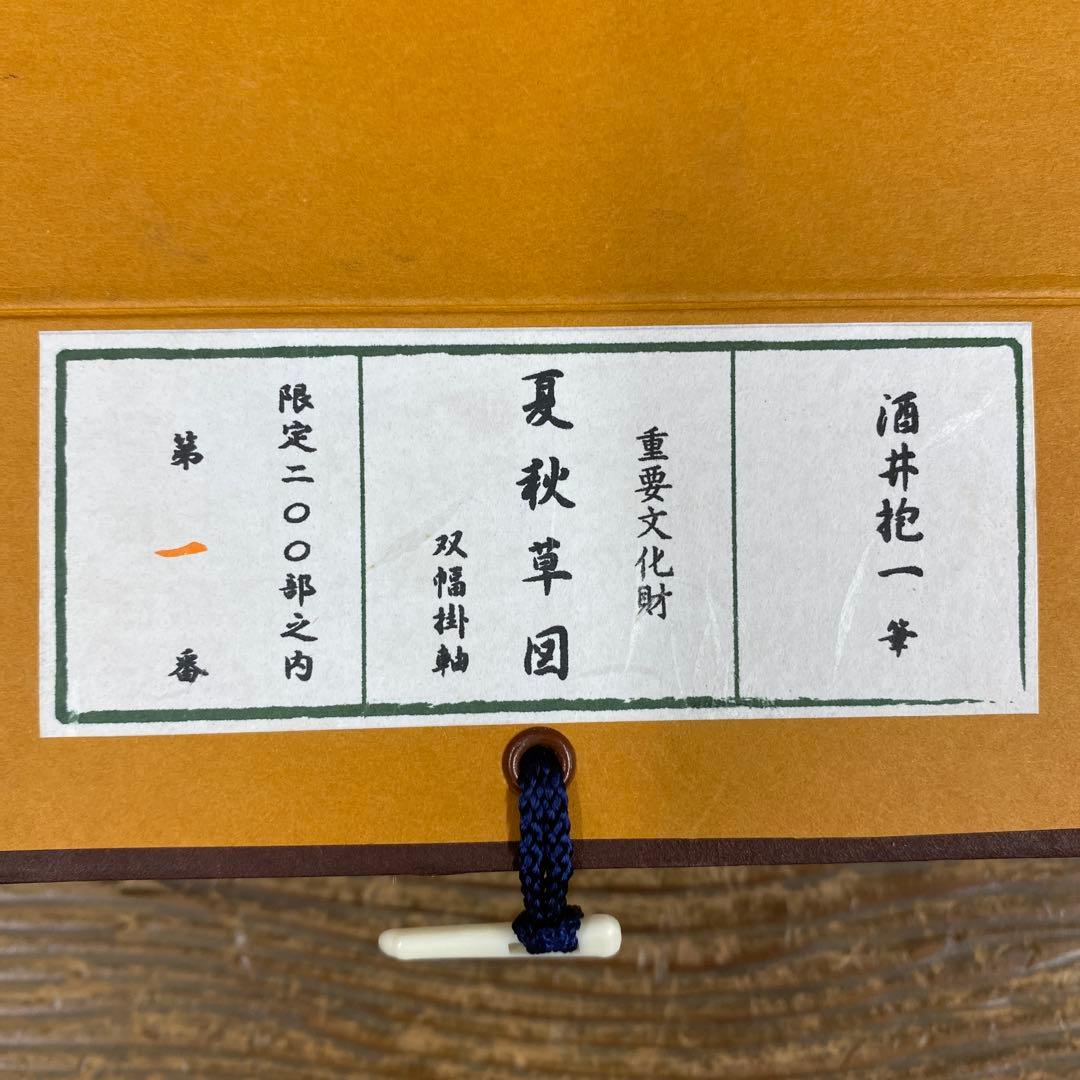 酒井抱一筆
重要文化財
夏秋草図
双幅掛軸
限定二〇〇部之内
第一番